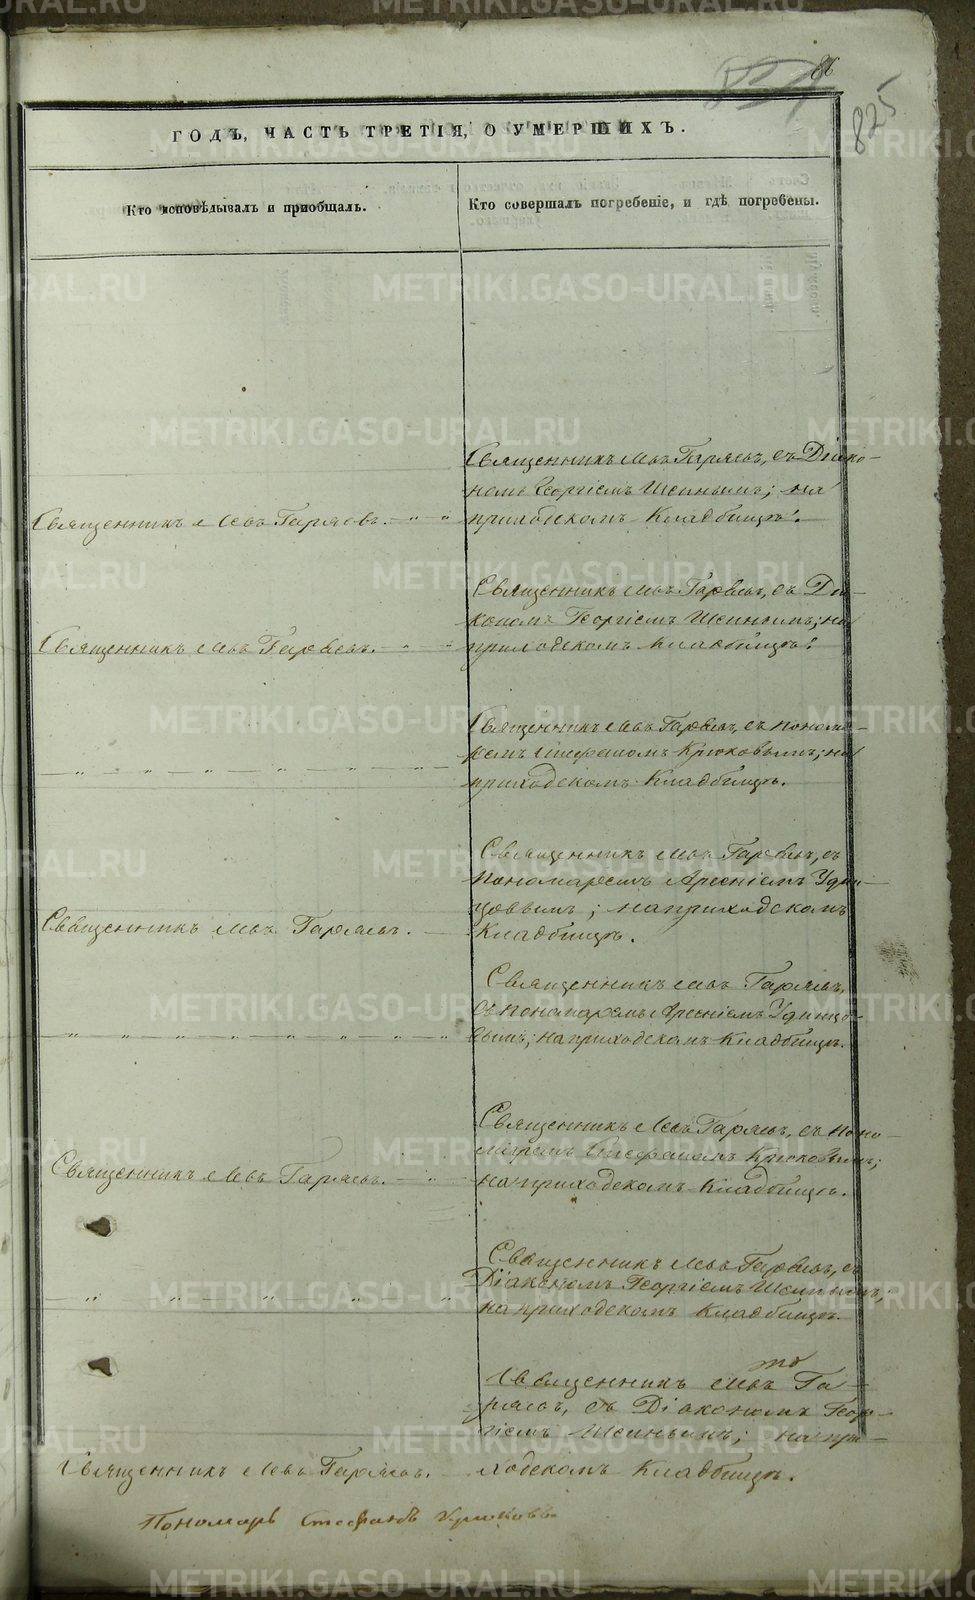 86
825
ГОДЪ, ЧАСТЬ ТРЕТІЯ, О УМЕРШИХЪ.
Кто исповѣдывалъ и пріобщалъ.
Кто совершалъ погребеніе, и гдѣ погребены.
Священникъ Левъ Гаряевъ.
Священникъ Левъ Гаряевъ, съ Діако-
номъ Георгіемъ Шеинымъ; на
приходскомъ Кладбищѣ.
Священникъ Левъ Гаряевъ.
Священникъ Левъ Гаряевъ, съ Діа-
кономъ Георгіемъ Шеинымъ; на
приходскомъ Кладбищѣ.
Священникъ Левъ Гаряевъ, съ понома-
ремъ Стефаномъ Крюковымъ; на
приходскомъ Кладбищѣ.
Священникъ Левъ Гаряевъ.
Священникъ Левъ Гаряевъ, съ
пономаремъ Арсеніемъ Удин-
цовымъ; на приходскомъ
Кладбищѣ.
Священникъ Левъ Гаряевъ,
съ пономаремъ Арсеніемъ Удинцо-
вымъ; на приходскомъ Кладбищѣ.
Священникъ Левъ Гаряевъ.
Священникъ Левъ Гаряевъ, съ поно-
маремъ Стефаномъ Крюковымъ;
на приходскомъ Кладбищѣ.
Священникъ Левъ Гаряевъ, съ
Діакономъ Георгіемъ Шеинымъ;
на приходскомъ Кладбищѣ.
Священникъ Левъ Гаряевъ.
тѣ
Священникъ Левъ Га-
ряевъ, съ Діакономъ Геор-
гіемъ Шеинымъ; на при-
ходскомъ Кладбищѣ.
Пономарь Стефанъ Крюковъ
METRIKI.GASO-URAL.RU